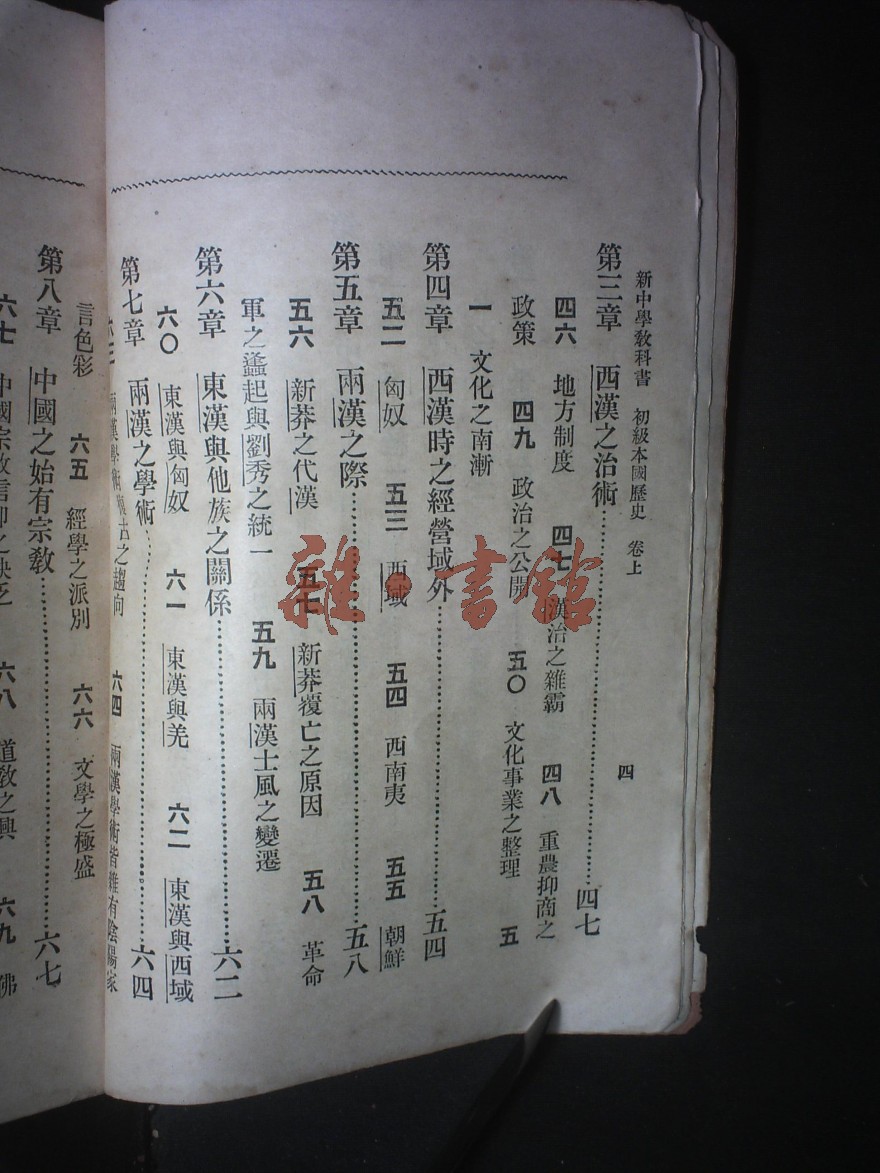 新中學教科書 初級本國歷史 卷上 四
第三章 西漢之治術 四七
四六 地方制度 四七 漢治之雜霸 四八 重農抑商之
政策 四九 政治之公開 五〇 文化事業之整理 五
一 文化之南漸
第四章 西漢時之經營域外 五四
五二 匈奴 五三 西域 五四 西南夷 五五 朝鮮
第五章 兩漢之際 五八
五六 新莽之代漢 五七 新莽覆亡之原因 五八 革命
軍之蠭起與劉秀之統一 五九 兩漢士風之變遷
第六章 東漢與他族之關係 六二
六〇 東漢與匈奴 六一 東漢與羌 六二 東漢與西域
第七章 兩漢之學術 六四
六三 兩漢學術 古之趨向 六四 兩漢學術皆雜有陰陽家
言色彩 六五 經學之派別 六六 文學之極盛
第八章 中國之始有宗教 六七
六七 中國宗教信仰之缺乏 六八 道教之興 六九 佛
雜·書館